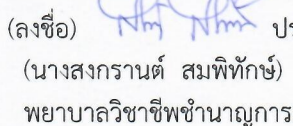 (ลงชื่อ) ปร
(นางสงกรานต์ สมพิทักษ์)
พยาบาลวิชาชีพชำนาญการ